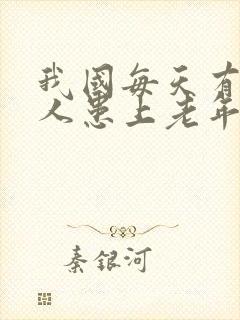 我國每天有
人患上老年
秦銀河